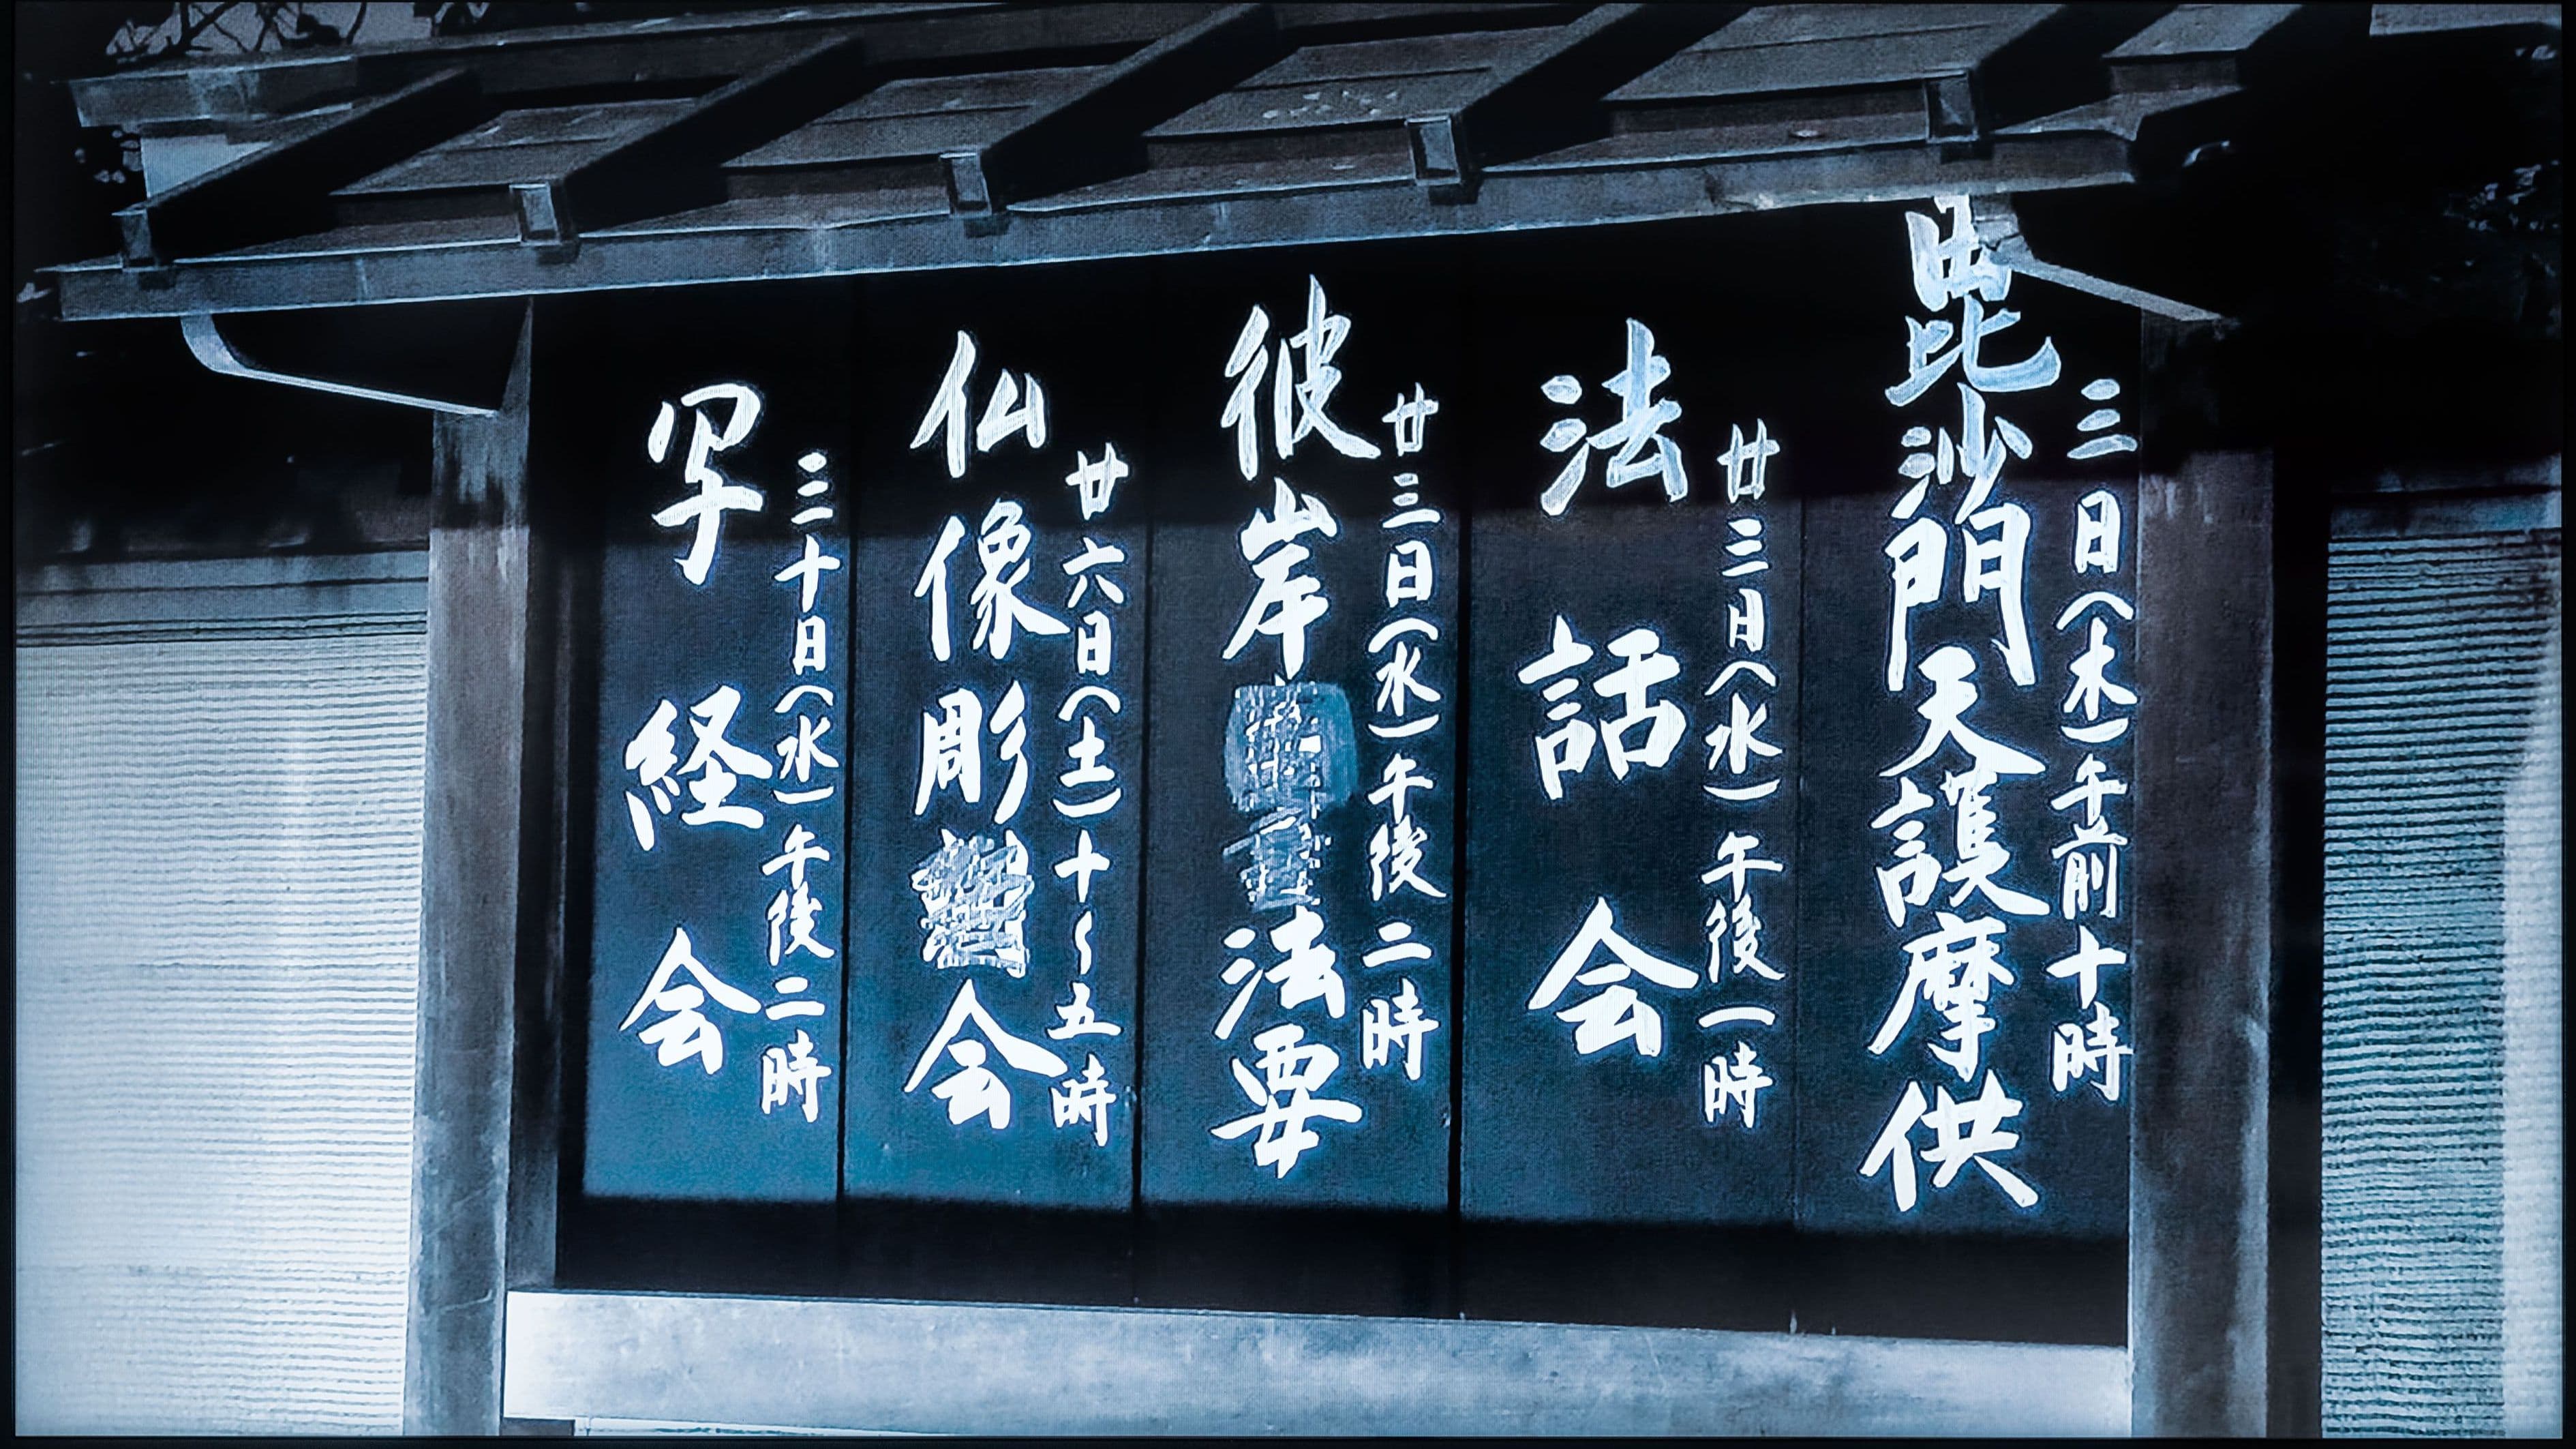 三日（木）午前十時
毘沙門天護摩供
廿三日（水）午後一時
法話会
廿三日（水）午後二時
彼岸 法要
廿六日（土）十〜五時
仏像彫 会
三十日（水）午後二時
写経会